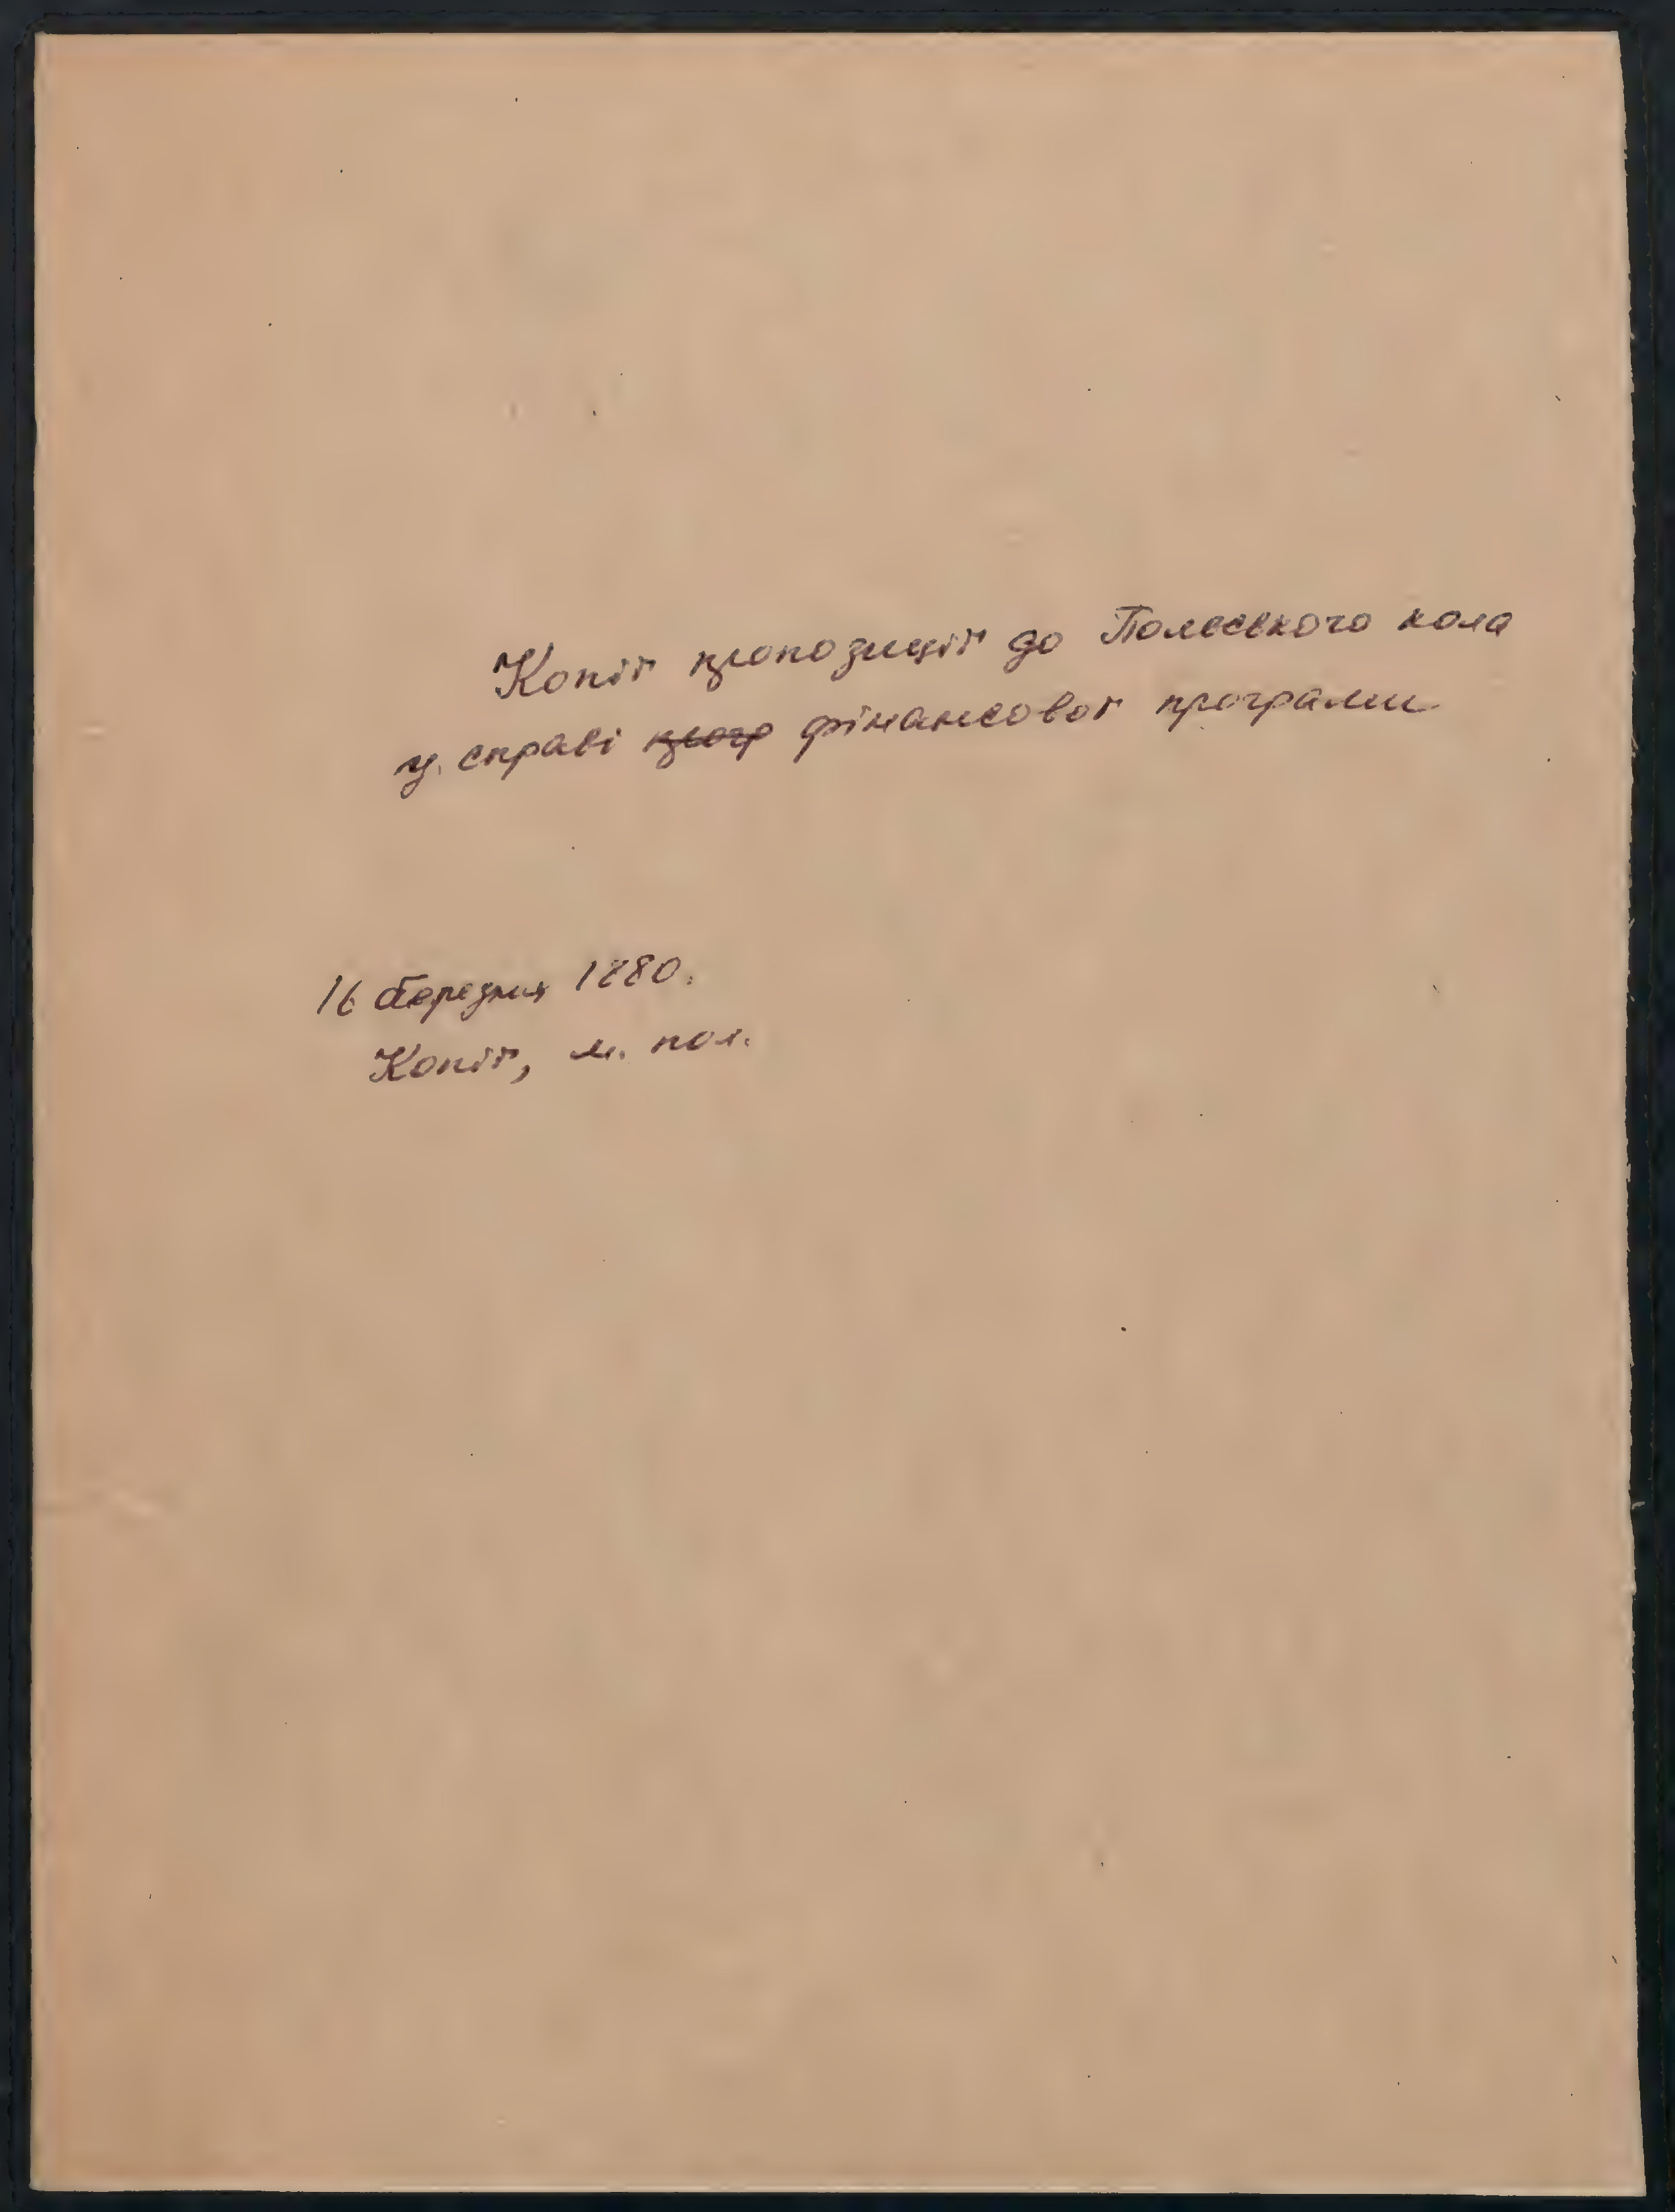 Копії пропозицій до Польського кола
у справі фінансової програми
16 березня 1880.
Копії, м. пол.